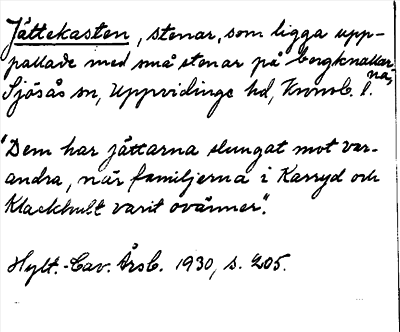 Jättekasten, stenar, som ligga upp-
pallade med små stenar på bergknallar-
na,
Sjösås sn, Uppvidinge hd, Kronob. l.
"Dem har jättarna slungat mot var-
andra, när familjerna i Karryd och
Klackhult varit ovänner".
Hylt.-Cav. Årsb. 1930, s. 205.